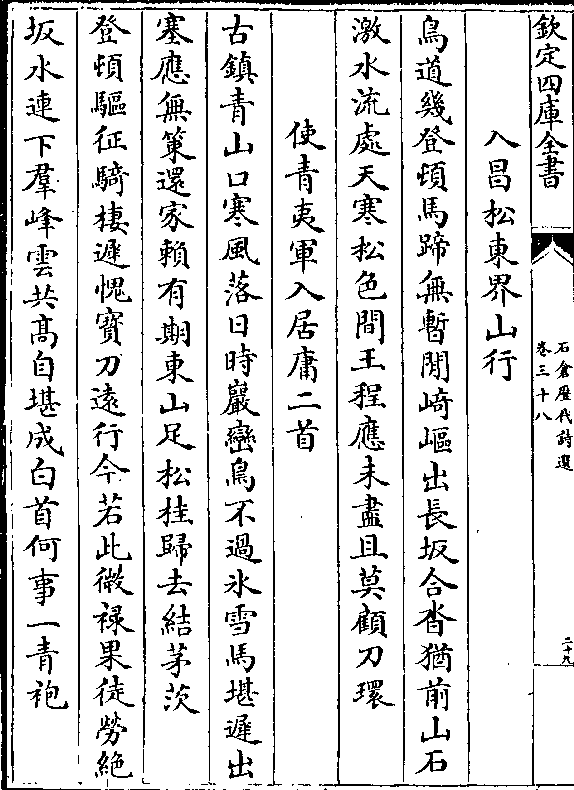 欽定四庫全書
石倉歷代詩選
卷三十八
二十九
入昌松東界山行
鳥道幾登頓馬蹄無暫閒崎嶇出長坂合沓猶前山石
激水流處天寒松色間王程應未盡且莫顧刀環
使青夷軍入居庸二首
古鎮青山口寒風落日時巖巒鳥不過氷雪馬堪遲出
塞應無䇿還家賴有期東山足松桂歸去結茅茨
登頓驅征騎棲遲愧寳刀遠行今若此微祿果徒勞絶
坂水連下羣峰雲共髙自堪成白首何事一青袍